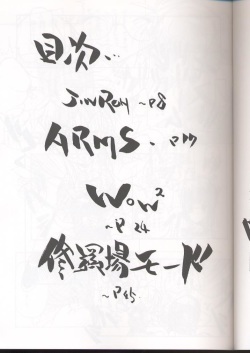 目次…
JIN ROH ~P8
ARMS. P17
WOW²
~P 24
修羅場モード
~P45